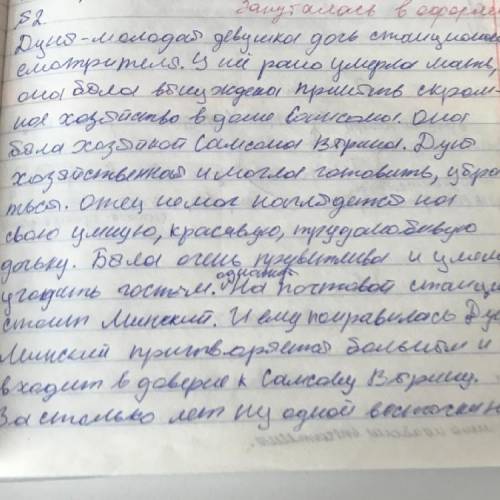 Запуталась в оформ
52
Дуня-молодая девушка дочь станционного
смотрителя. У неё рано умерла мать,
она была вынуждена принять скром-
ное хозяйство в доме Самсона. Она
была хозяйкой Самсона Вырина. Дуня
хозяйственная и могла готовить, убрать
ться. Отец не мог наглядется на
свою умную, красивую, трудолюбивую
дочьку. Была очень приветлива и умела
угодить гостям. однажды На почтовой станции
стоит Минский. И ему понравилась Дуня
Минский притворяется больным и
входит в доверие к Самсону Вырину.
За столько лет ну одной весточки н